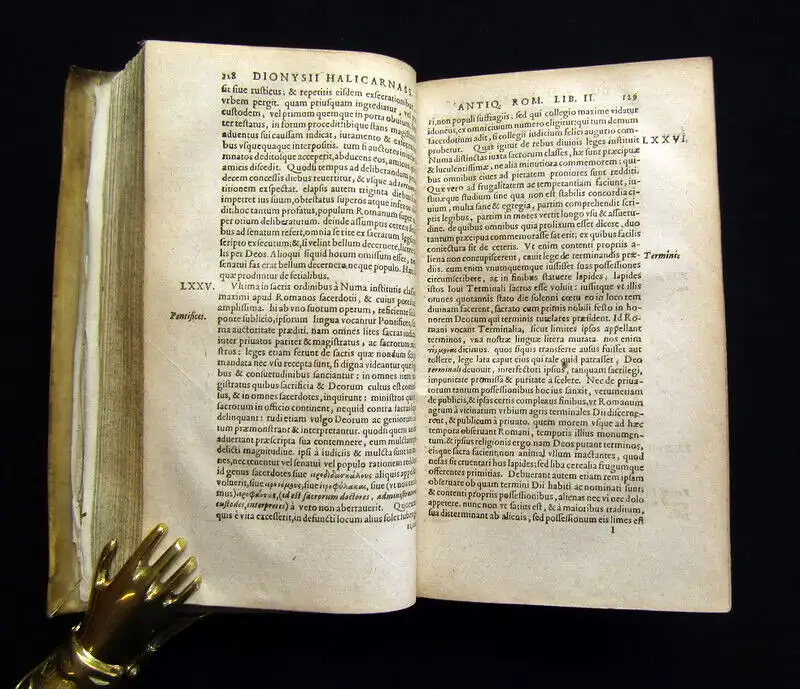 218 DIONYSII HALICARNASS.
sit siue rusticus; & repetitis eisdem exsecrationibus
vrbem pergit. quam priusquam ingrediatur, vel
custodem, vel primum quemque in porta obuium,
ter testatus, in forum procedit: ibique stans magistr
aduentus sui caussam indicat, iuramento & exsecr
bus vsquequaque interpositis. tum si auctores iniuri
mnatos deditosque acceperit, abducens eos, amicus
amicis discedit. Quod si tempus ad deliberandum pe
decem concessis diebus reuertitur, & vsque ad
titionem exspectat. elapsis autem triginta diebus
imperet ius suum, obtestatus superos atque inferos
dit: hoc tantum profatus, populum Romanum super
per otium deliberaturum. deinde assumptis ceteris
bus ad senatum refert, omnia se rite ex sacratum legum
scripto exsecutum; &, si velint bellum decernere, licere
lis per Deos. Alioqui siquid horum omissum esset,
senatui fas erat bellum decernere, neque populo. Hæc
quæ produntur de fetialibus.
LXXV. Vltima in sacris ordinibus à Numa institutis
maximi apud Romanos sacerdotii, & cuius potestas
amplissima. hi ab vno suorum operum, refectione
Pontifices. ponte sublicio, ipsorum lingua vocantur Pontifices,
ma auctoritate præditi. nam omnes lites sacras
inter priuatos pariter & magistratus, ac sacrorum
stros: leges etiam ferunt de sacris quæ nondum
mandata nec vsu recepta sunt, si digna videantur quæ
bus & consuetudinibus sanciantur: in omnes item
gistratus quibus sacrificia & Deorum cultus est com
sus, & in omnes sacerdotes, inquirunt: ministros
sacrorum in officio continent, nequid contra sacras
delinquant: rudi etiam vulgo Deorum ac geniorum
tum præmonstrant & interpretantur. quodsi quem
aduertant præscripta sua contemnere, eum mulctant
delicti magnitudine. ipsi à iudiciis & mulcta sunt
nes, nec tenentur vel senatui vel populo rationem redd
id genus sacerdotes siue ἱεροδιδασκάλους aliquis appell
voluerit, siue ἱερονόμους, siue ἱεροφύλακας, siue (vt nos
mus) ἱεροφάντας, (id est sacrorum doctores, administratores,
custodes, interpretes) à vero non aberrauerit. Quorum
quis è vita excesserit, in defuncti locum alius solet
ANTIQ. ROM. LIB. II. 129
ri, non populi suffragiis; sed qui collegio maxime videatur
idoneus, ex omni ciuium numero eligitur: qui tum demum
sacerdotium adit, si collegii iudicium felici augurio com-
probetur. Quæ igitur de rebus diuinis leges instituit LXXVI.
Numa distinctas iuxta sacrorum classes, hæ sunt præcipuæ
& luculentissimæ, ne alia minutiora commemorem: qui-
bus omnibus ciues ad pietatem proniores sunt redditi.
Quæ vero ad frugalitatem ac temperantiam faciunt, iu-
stitiæque studium sine qua non est stabilis concordia ci-
uium, multa sane & egregia, partim comprehendit scri-
ptis legibus, partim in mores vertit longo vsu & assuetu-
dine. de quibus omnibus quia prolixum esset dicere, duo
tantum præcipua commemorasse sat erit; ex quibus facilis
coniectura sit de ceteris. Vt enim contenti propriis a-
liena non concupiscerent, cauit lege de terminandis præ- Termini.
diis. cum enim vnumquemque iussisset suas possessiones
circumscribere, ac in finibus statuere lapides, lapides
istos Ioui Terminali sacros esse voluit: iussitque vt illis
omnes quotannis stato die solenni cœtu eo in locorem
diuinam facerent, sacrato cum primis nobili festo in ho-
norem Deorum qui terminis tutelares præsident. Id Ro-
mani vocant Terminalia, sicut limites ipsos appellant
terminos, vna nostræ linguæ litera mutata. nos enim
τέρμονας dicimus. quos siquis transferre ausus fuisset aut
tollere, lege lara caput eius qui tale quid patrasset, Deo
terminali deuouit, interfectori ipsius, tanquam sacrilegi,
impunitate promissa & puritate à scelere. Nec de priua-
torum tantum possessionibus hoc ius sanxit, verumetiam
de publicis, & ipsas certis complexus finibus, vt Romanum
agrum à vicinatum vrbium agris termales Dii discerne-
rent, & publicum à priuato. quem morem vsque ad hæc
tempora obseruant Romani, temporis illius monumen-
tum. & ipsius religionis ergo nam Deos putant terminos,
eisque sacra faciunt, non animal vllum mactantes, quod
nefas sit cruentari hos lapides; sed liba cerealia frugumque
offerentes primitias. Debuerant autem etiam rem ipsam
obseruare ob quam termini Dii habiti ac nominati sunt:
& contenti propriis possessionibus, alienas nec vi nec dolo
appetere. nunc non vt satius est, & à maioribus traditum,
sua disterminant ab alienis, sed possessionum eis limes est
I